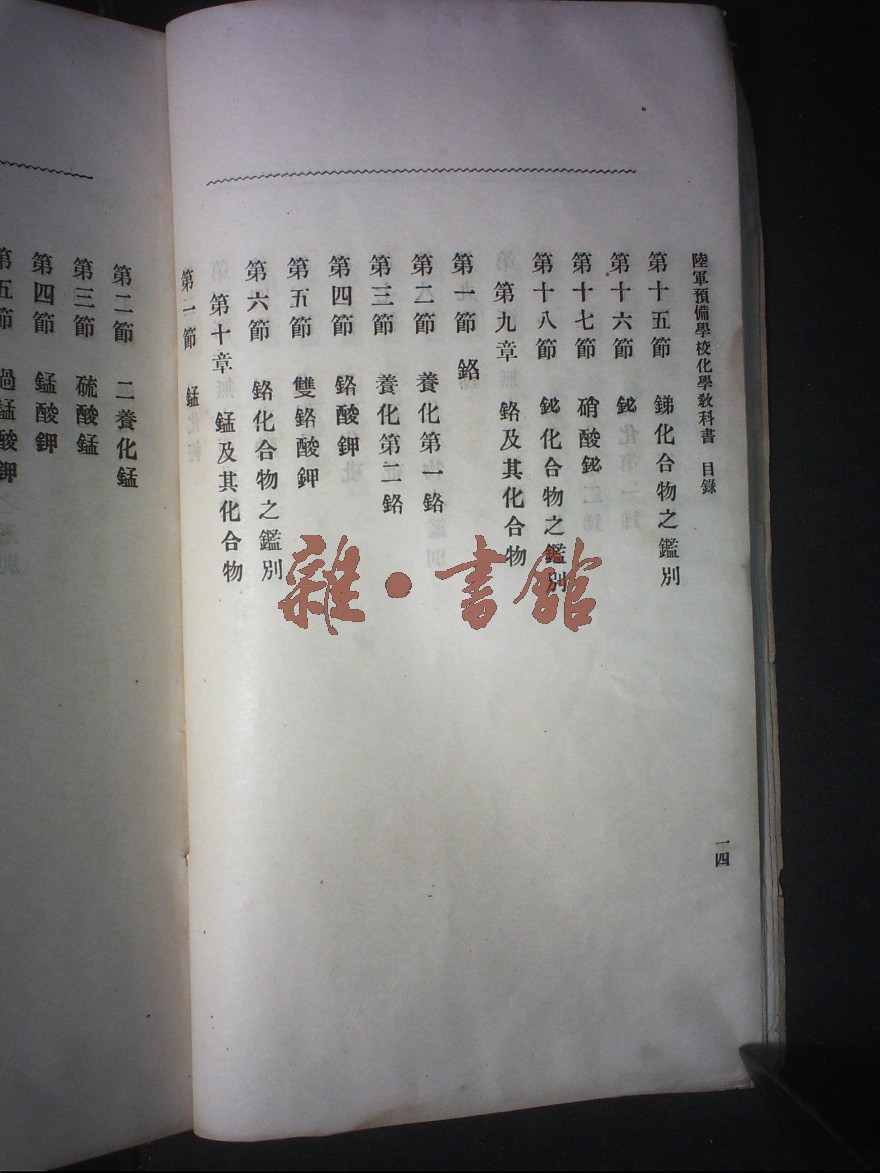 陸軍預備學校化學教科書 目錄
第十五節 銻化合物之鑑別
第十六節 鉍
第十七節 硝酸鉍
第十八節 鉍化合物之鑑別
第九章 鉻及其化合物
第一節 鉻
第二節 養化第一鉻
第三節 養化第二鉻
第四節 鉻酸鉀
第五節 雙鉻酸鉀
第六節 鉻化合物之鑑別
第十章 錳及其化合物
第一節 錳
一四
第二節 二養化錳
第三節 硫酸錳
第四節 錳酸鉀
第五節 過錳酸鉀
雜·書館